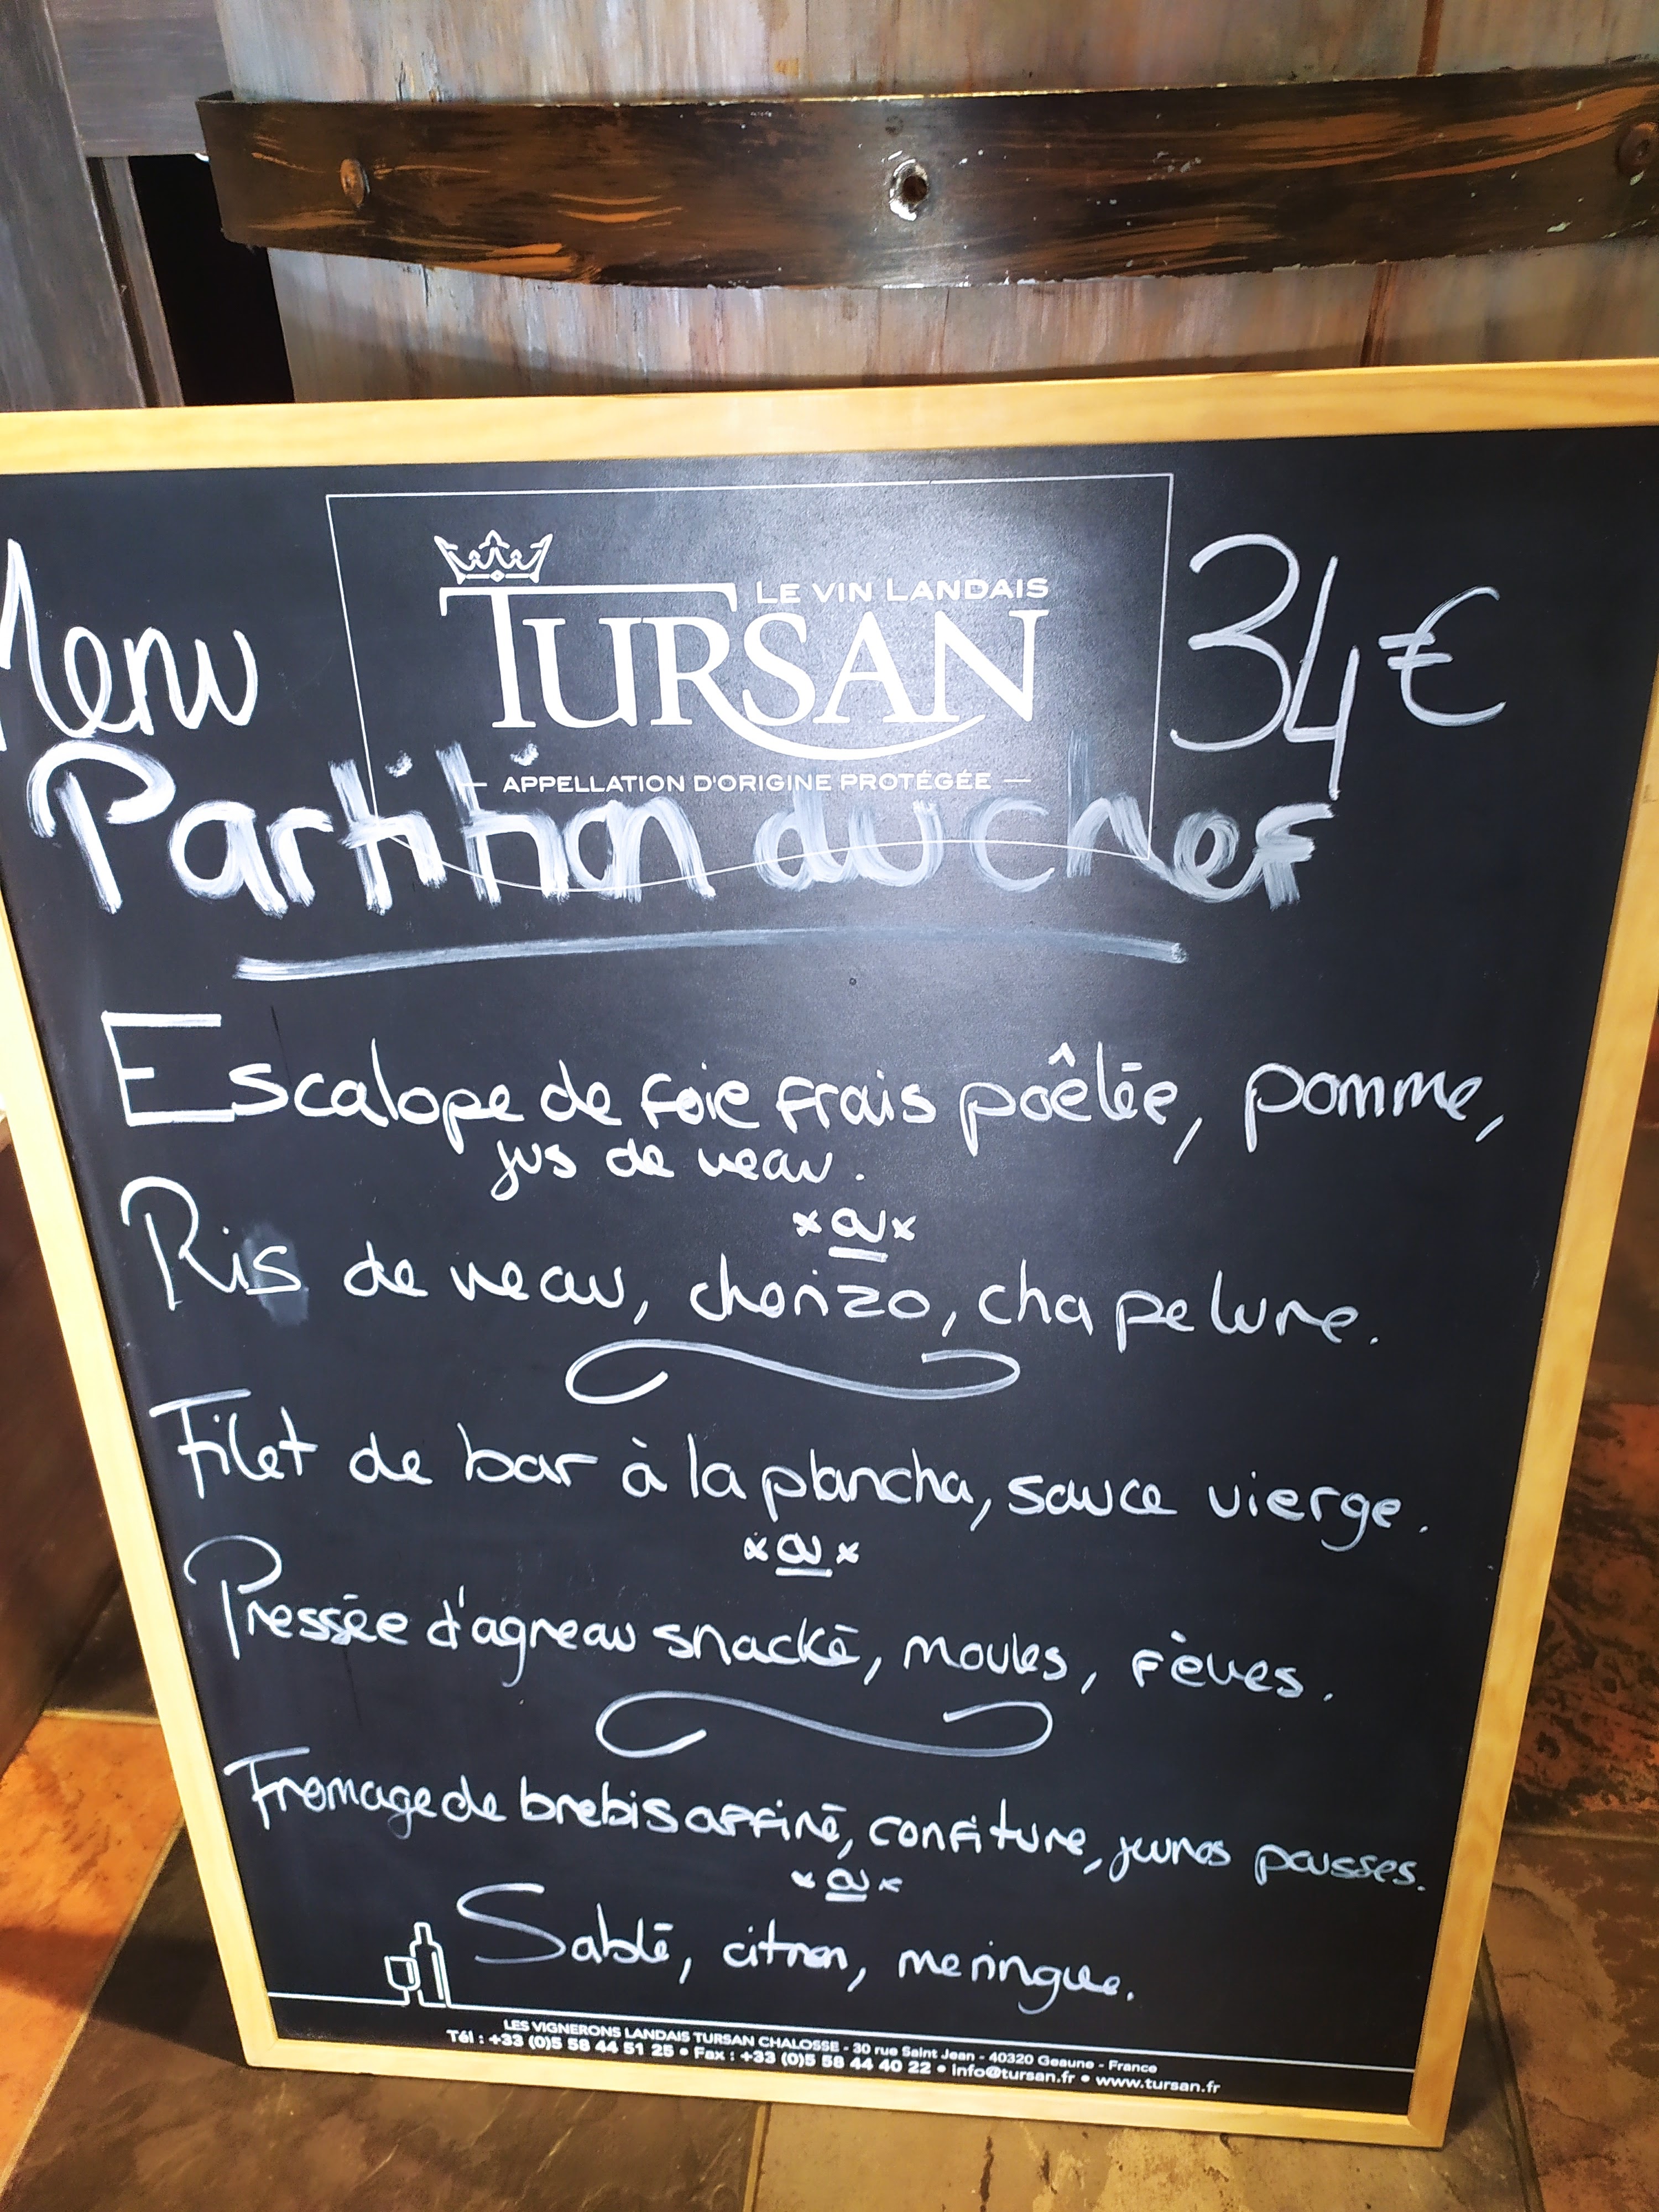 LE VIN LANDAIS
Menu TURSAN 34€
APPELLATION D'ORIGINE PROTÉGÉE
Partition du chef
Escalope de foie frais poêlée, pomme,
jus de veau.
x ou x
Ris de veau, chorizo, chapelure.
Filet de bar à la plancha, sauce vierge.
x ou x
Pressée d'agneau snacké, moules, fèves.
Fromage de brebis affiné, confiture, jeunes pousses.
x ou x
Sablé, citron, meringue.
LES VIGNERONS LANDAIS TURSAN CHALOSSE - 30 rue Saint Jean - 40320 Geaune - France
Tél : +33 (0)5 58 44 51 25 • Fax : +33 (0)5 58 44 40 22 • info@tursan.fr • www.tursan.fr